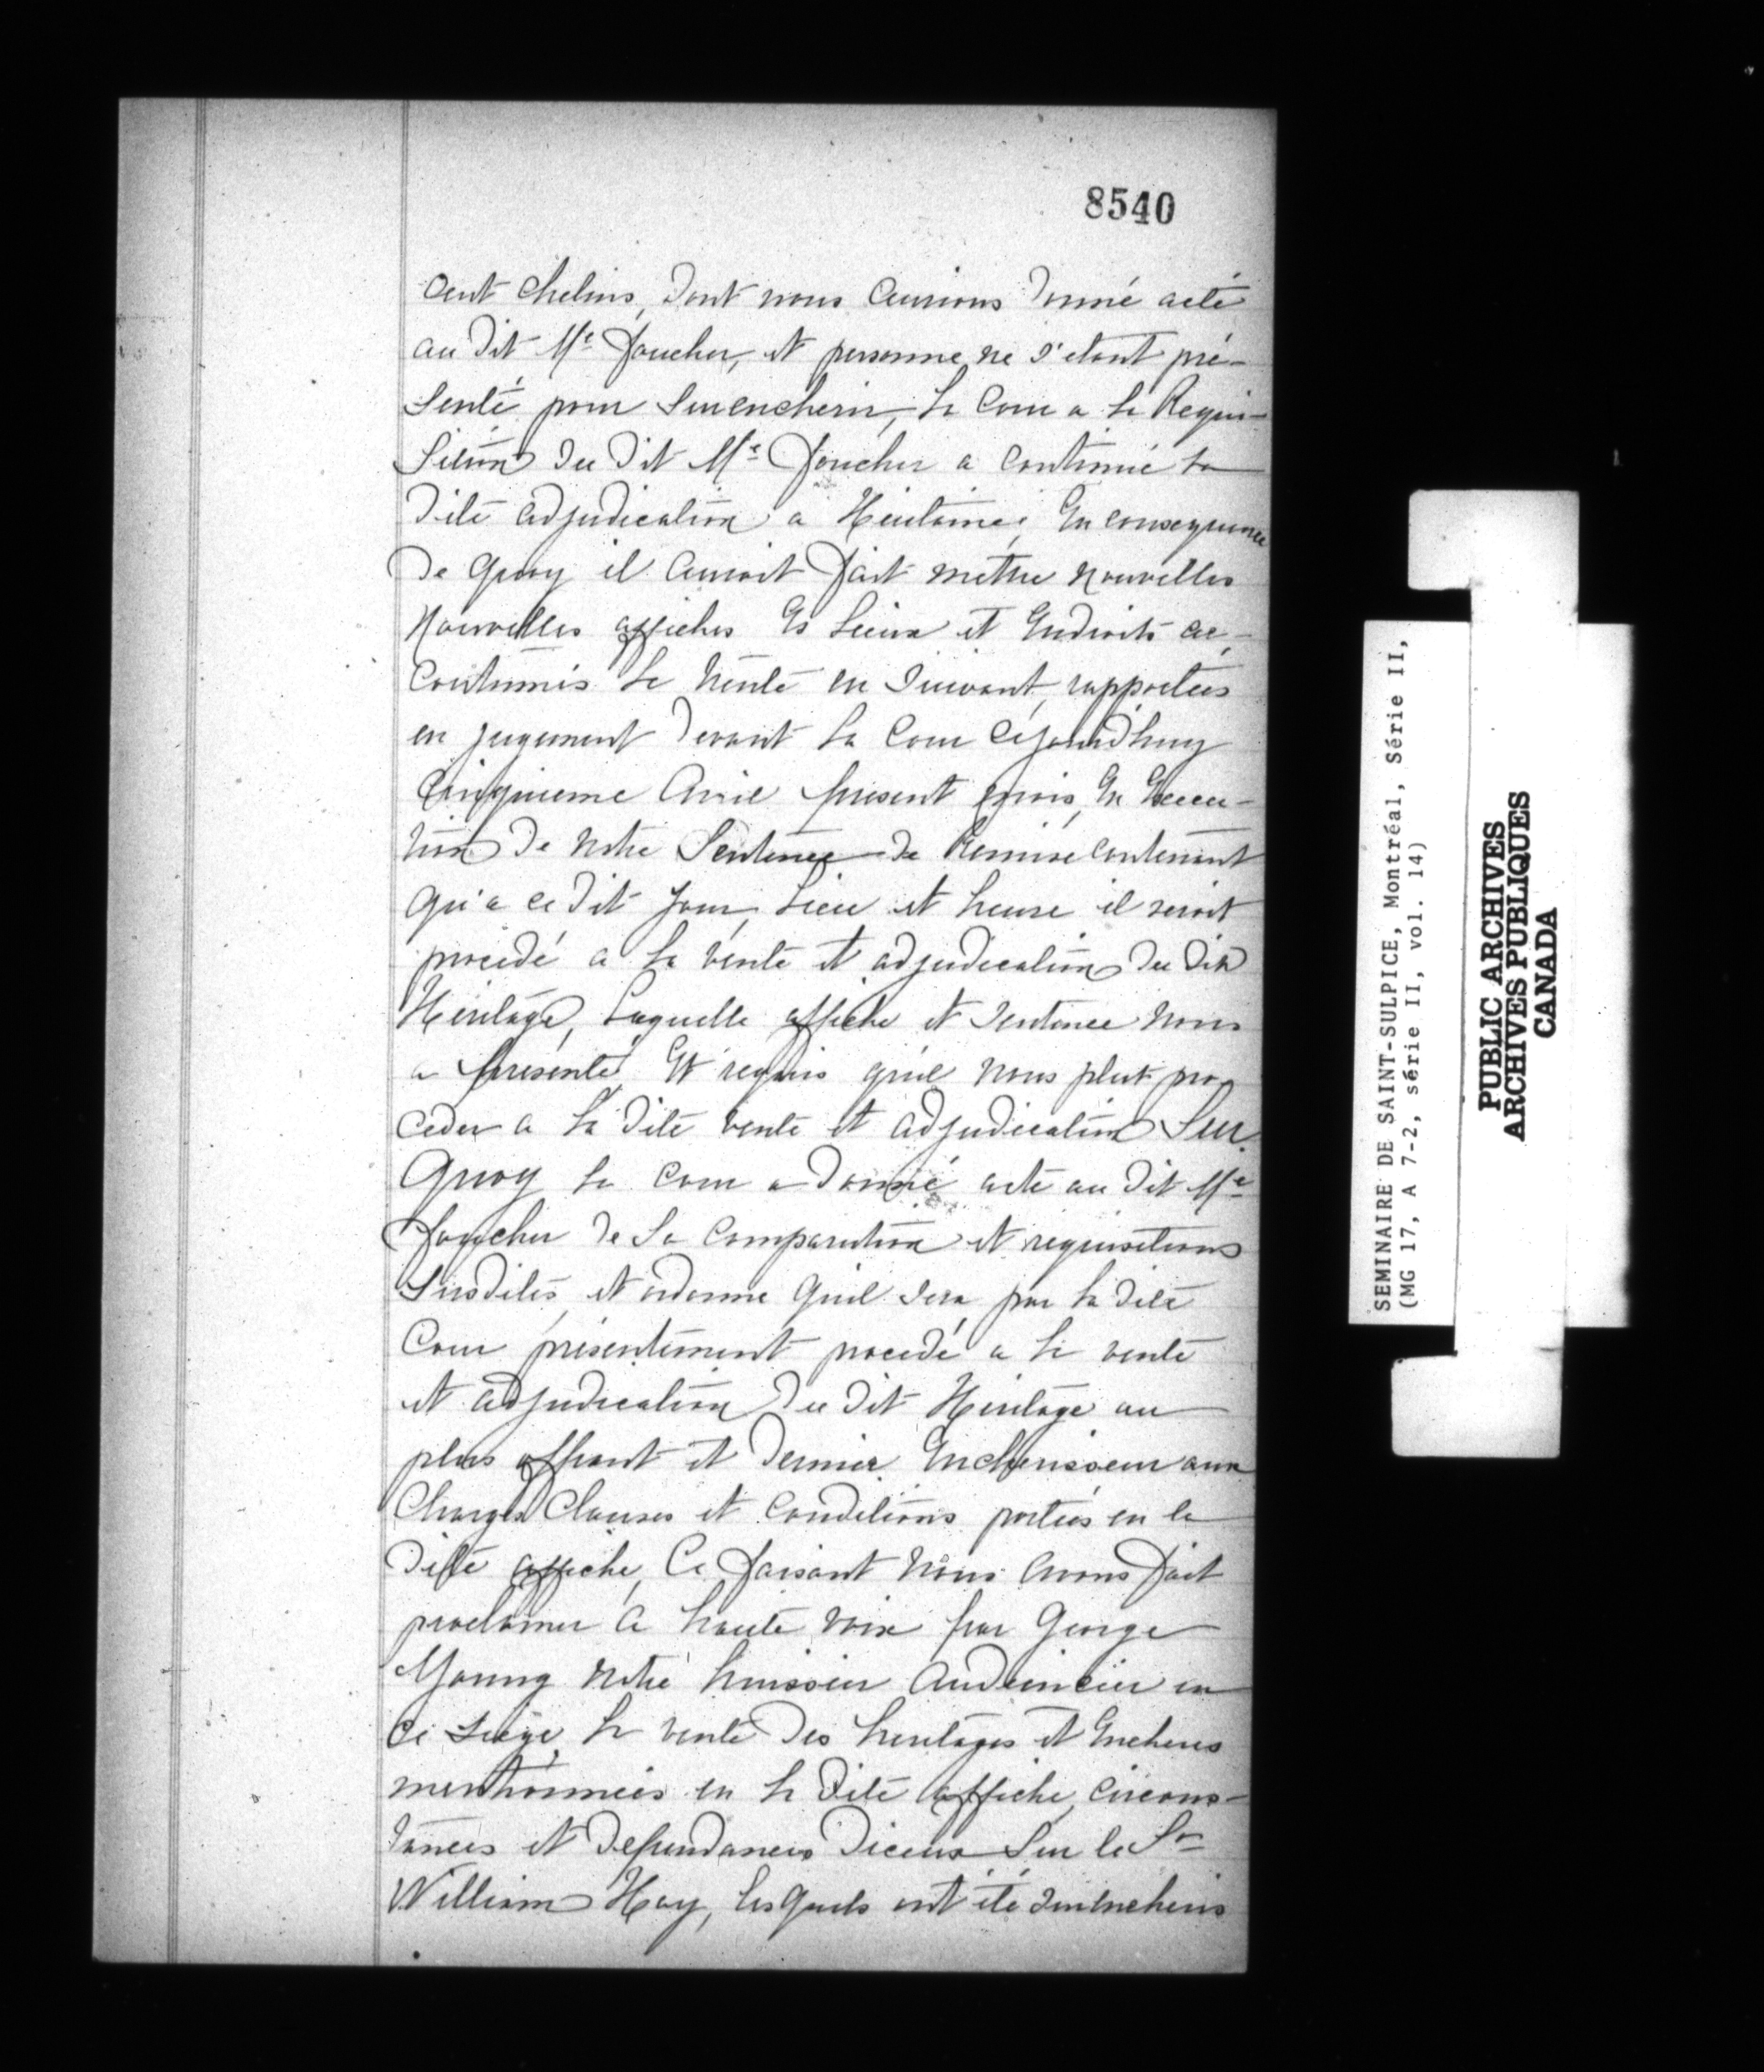 8540
cent chelins, dont nous aurions donné acte
au dit Me Foucher, et personne ne s'etant pré-
senté pour surencherir, la Cour a la Requi-
sition du dit Me Foucher a continué la
dite adjudication a Huitaine; En consequence
de quoy il auroit fait mettre nouvelles
nouvelles affiches Es Lieux et Endroits ac-
coutumés le trente en suivant, rapportées
en jugement devant la Cour cejourdhuy
Cinquieme Avril present mois, En Execu-
tion de notre Sentence de Remise contenant
qu'a ce dit jour, Lieu et heure il seroit
procédé a la vente et adjudication du dit
Héritage, Laquelle affiche et sentence nous
a présenté, Et requis qu'il nous plut pro-
ceder a la dite vente et adjudication Sur
Quoy la Cour a donné acte au dit Me
Foucher de sa comparution et requisitions
susdites, et ordonne qu'il sera par la dite
Cour présentement procédé a la vente
et adjudication du dit Héritage au
plus offrant et dernier Encherisseur aux
Charges Clauses et Conditions portées en la
dite affiche, Ce faisant Nous avons fait
proclamer à haute voix par George
Young notre huissier Audiencier en
ce siège, la vente des heritages et Encheres
mentionnées en la dite affiche, circons-
tances et dependances diceux Sur le Sr
William Hay, lesquels ont été surencheris
SEMINAIRE DE SAINT-SULPICE, Montréal, Série II,
(MG 17, A 7-2, série II, vol. 14)
PUBLIC ARCHIVES
ARCHIVES PUBLIQUES
CANADA